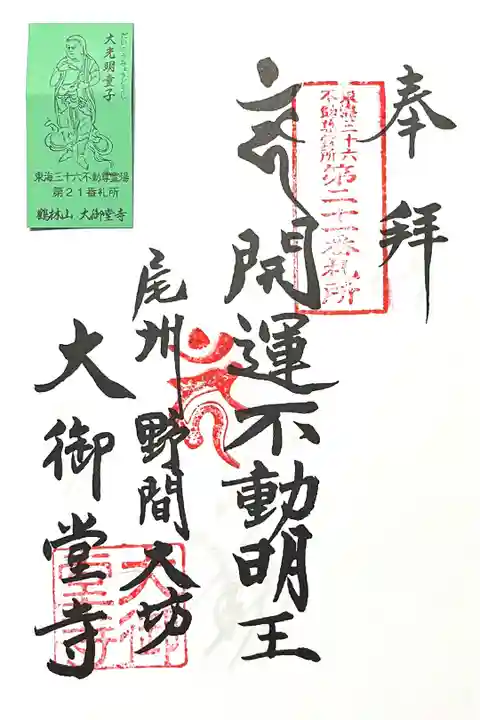 奉拝
東海三十六
不動尊霊所
第二十一番札所
開運不動明王
尾州野間大坊
大御堂寺
だいこうみょうどうじ
大光明童子
東海三十六不動尊霊場
第21番札所
鶴林山 大御堂寺